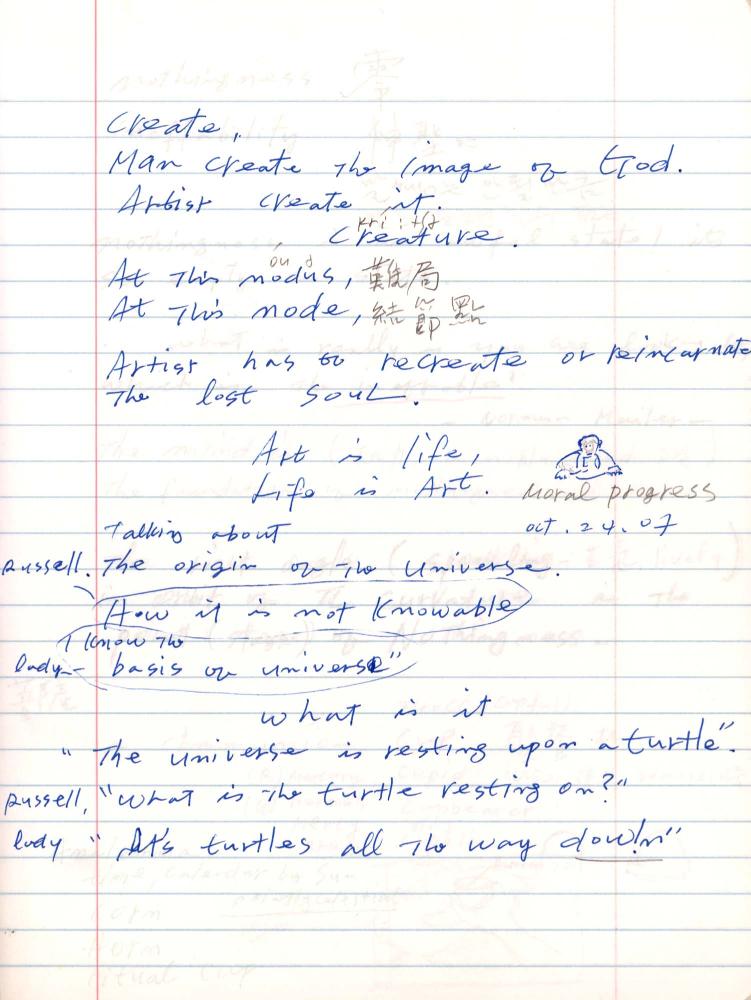 Create,
Man create the image of God.
Artist create it.
kri:tʃə
Creature.
óu ə
At this nodus, 難局
At this node, 結節點
Artist has to recreate or reincarnate
the lost soul.
Art is life,
Life is Art.
Moral progress
oct. 24. 07
Talking about
Russell. The origin of the Universe.
How it is not knowable
I know the
lady - basis of universe"
what is it
" The universe is resting upon a turtle".
Russell, "what is the turtle resting on?"
lady " It's turtles all the way down"